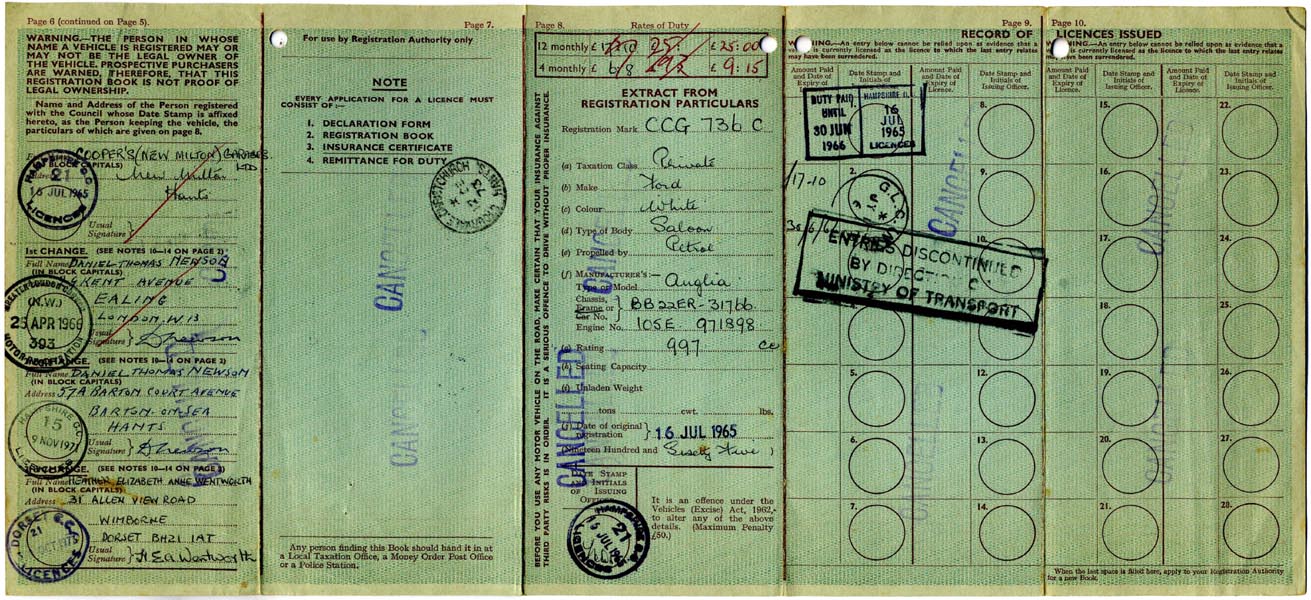 Page 6 (continued on Page 5).
WARNING.—THE PERSON IN WHOSE
NAME A VEHICLE IS REGISTERED MAY OR
MAY NOT BE THE LEGAL OWNER OF
THE VEHICLE. PROSPECTIVE PURCHASERS
ARE WARNED, THEREFORE, THAT THIS
REGISTRATION BOOK IS NOT PROOF OF
LEGAL OWNERSHIP.
Name and Address of the Person registered
with the Council whose Date Stamp is affixed
hereto, as the Person keeping the vehicle, the
particulars of which are given on page 8.
COOPER'S (NEW MILTON) GARAGES
LTD
(IN BLOCK CAPITALS)
New Milton
Hants
HAMPSHIRE C.C.
21
16 JUL 1965
LICENCES
Usual
Signature
1st CHANGE. (SEE NOTES 10—14 ON PAGE 2)
Full Name DANIEL THOMAS NEWSON
(IN BLOCK CAPITALS)
KENT AVENUE
EALING
LONDON. W.13
GREATER LONDON COUNCIL
(N.W.)
23 APR 1966
393
MOTOR REGISTRATION
Usual
Signature
CHANGE. (SEE NOTES 10—14 ON PAGE 2)
Full Name DANIEL THOMAS NEWSON
(IN BLOCK CAPITALS)
Address 57A BARTON COURT AVENUE
BARTON-ON-SEA
HANTS
HAMPSHIRE C.C.
15
9 NOV 1971
Usual
Signature
CHANGE. (SEE NOTES 10—14 ON PAGE 2)
Full Name HEATHER ELIZABETH ANNE WENTWORTH
(IN BLOCK CAPITALS)
Address 31 ALLEN VIEW ROAD
WIMBORNE
DORSET BH21 1AT
DORSET C.C.
21
OCT 1975
LICENCES
Usual
Signature H E A Wentworth
Page 7.
For use by Registration Authority only
NOTE
EVERY APPLICATION FOR A LICENCE MUST
CONSIST OF :—
1. DECLARATION FORM
2. REGISTRATION BOOK
3. INSURANCE CERTIFICATE
4. REMITTANCE FOR DUTY
CANCELLED
CANCELLED
Any person finding this Book should hand it in at
a Local Taxation Office, a Money Order Post Office
or a Police Station.
Page 8. Rates of Duty
12 monthly £ 25: £ 25:00
4 monthly £ 6/8 £ 9:15
BEFORE YOU USE ANY MOTOR VEHICLE ON THE ROAD, MAKE CERTAIN THAT YOUR INSURANCE AGAINST
THIRD PARTY RISKS IS IN ORDER. IT IS A SERIOUS OFFENCE TO DRIVE WITHOUT PROPER INSURANCE.
EXTRACT FROM
REGISTRATION PARTICULARS
Registration Mark CCG 736 C
(a) Taxation Class Private
(b) Make Ford
(c) Colour White
(d) Type of Body Saloon
(e) Propelled by Petrol
(f) MANUFACTURER'S:—
Type or Model Anglia
Chassis,
Frame or
Car No. BB22ER-31766
Engine No. 105E 971898
(g) Rating 997 cc
(h) Seating Capacity
(i) Unladen Weight
tons cwt. lbs.
(j) Date of original
registration 16 JUL 1965
(Nineteen Hundred and Sixty Five)
CANCELLED
DATE STAMP
AND INITIALS
OF ISSUING
OFFICER
HAMPSHIRE C.C.
21
LICENCES
It is an offence under the
Vehicles (Excise) Act, 1962,
to alter any of the above
details. (Maximum Penalty
£50.)
Page 9. RECORD OF
WARNING.—An entry below cannot be relied upon as evidence that a
vehicle is currently licensed as the licence to which the last entry relates
may have been surrendered.
Amount Paid
and Date of
Expiry of
Licence.
Date Stamp and
Initials of
Issuing Officer.
Amount Paid
and Date of
Expiry of
Licence.
Date Stamp and
Initials of
Issuing Officer.
DUTY PAID
UNTIL
30 JUN
1966
HAMPSHIRE C.C.
16
JUL
1965
LICENCES
17-10
2.
G.L.C.
ENTRIES DISCONTINUED
BY DIRECTION OF
MINISTRY OF TRANSPORT
5.
6.
7.
8.
9.
10.
12.
13.
14.
CANCELLED
CANCELLED
Page 10. LICENCES ISSUED
WARNING.—An entry below cannot be relied upon as evidence that a
vehicle is currently licensed as the licence to which the last entry relates
may have been surrendered.
Amount Paid
and Date of
Expiry of
Licence.
Date Stamp and
Initials of
Issuing Officer.
Amount Paid
and Date of
Expiry of
Licence.
Date Stamp and
Initials of
Issuing Officer.
15.
16.
17.
18.
19.
20.
21.
22.
23.
24.
25.
26.
27.
28.
CANCELLED
CANCELLED
When the last space is filled here, apply to your Registration Authority
for a new Book.